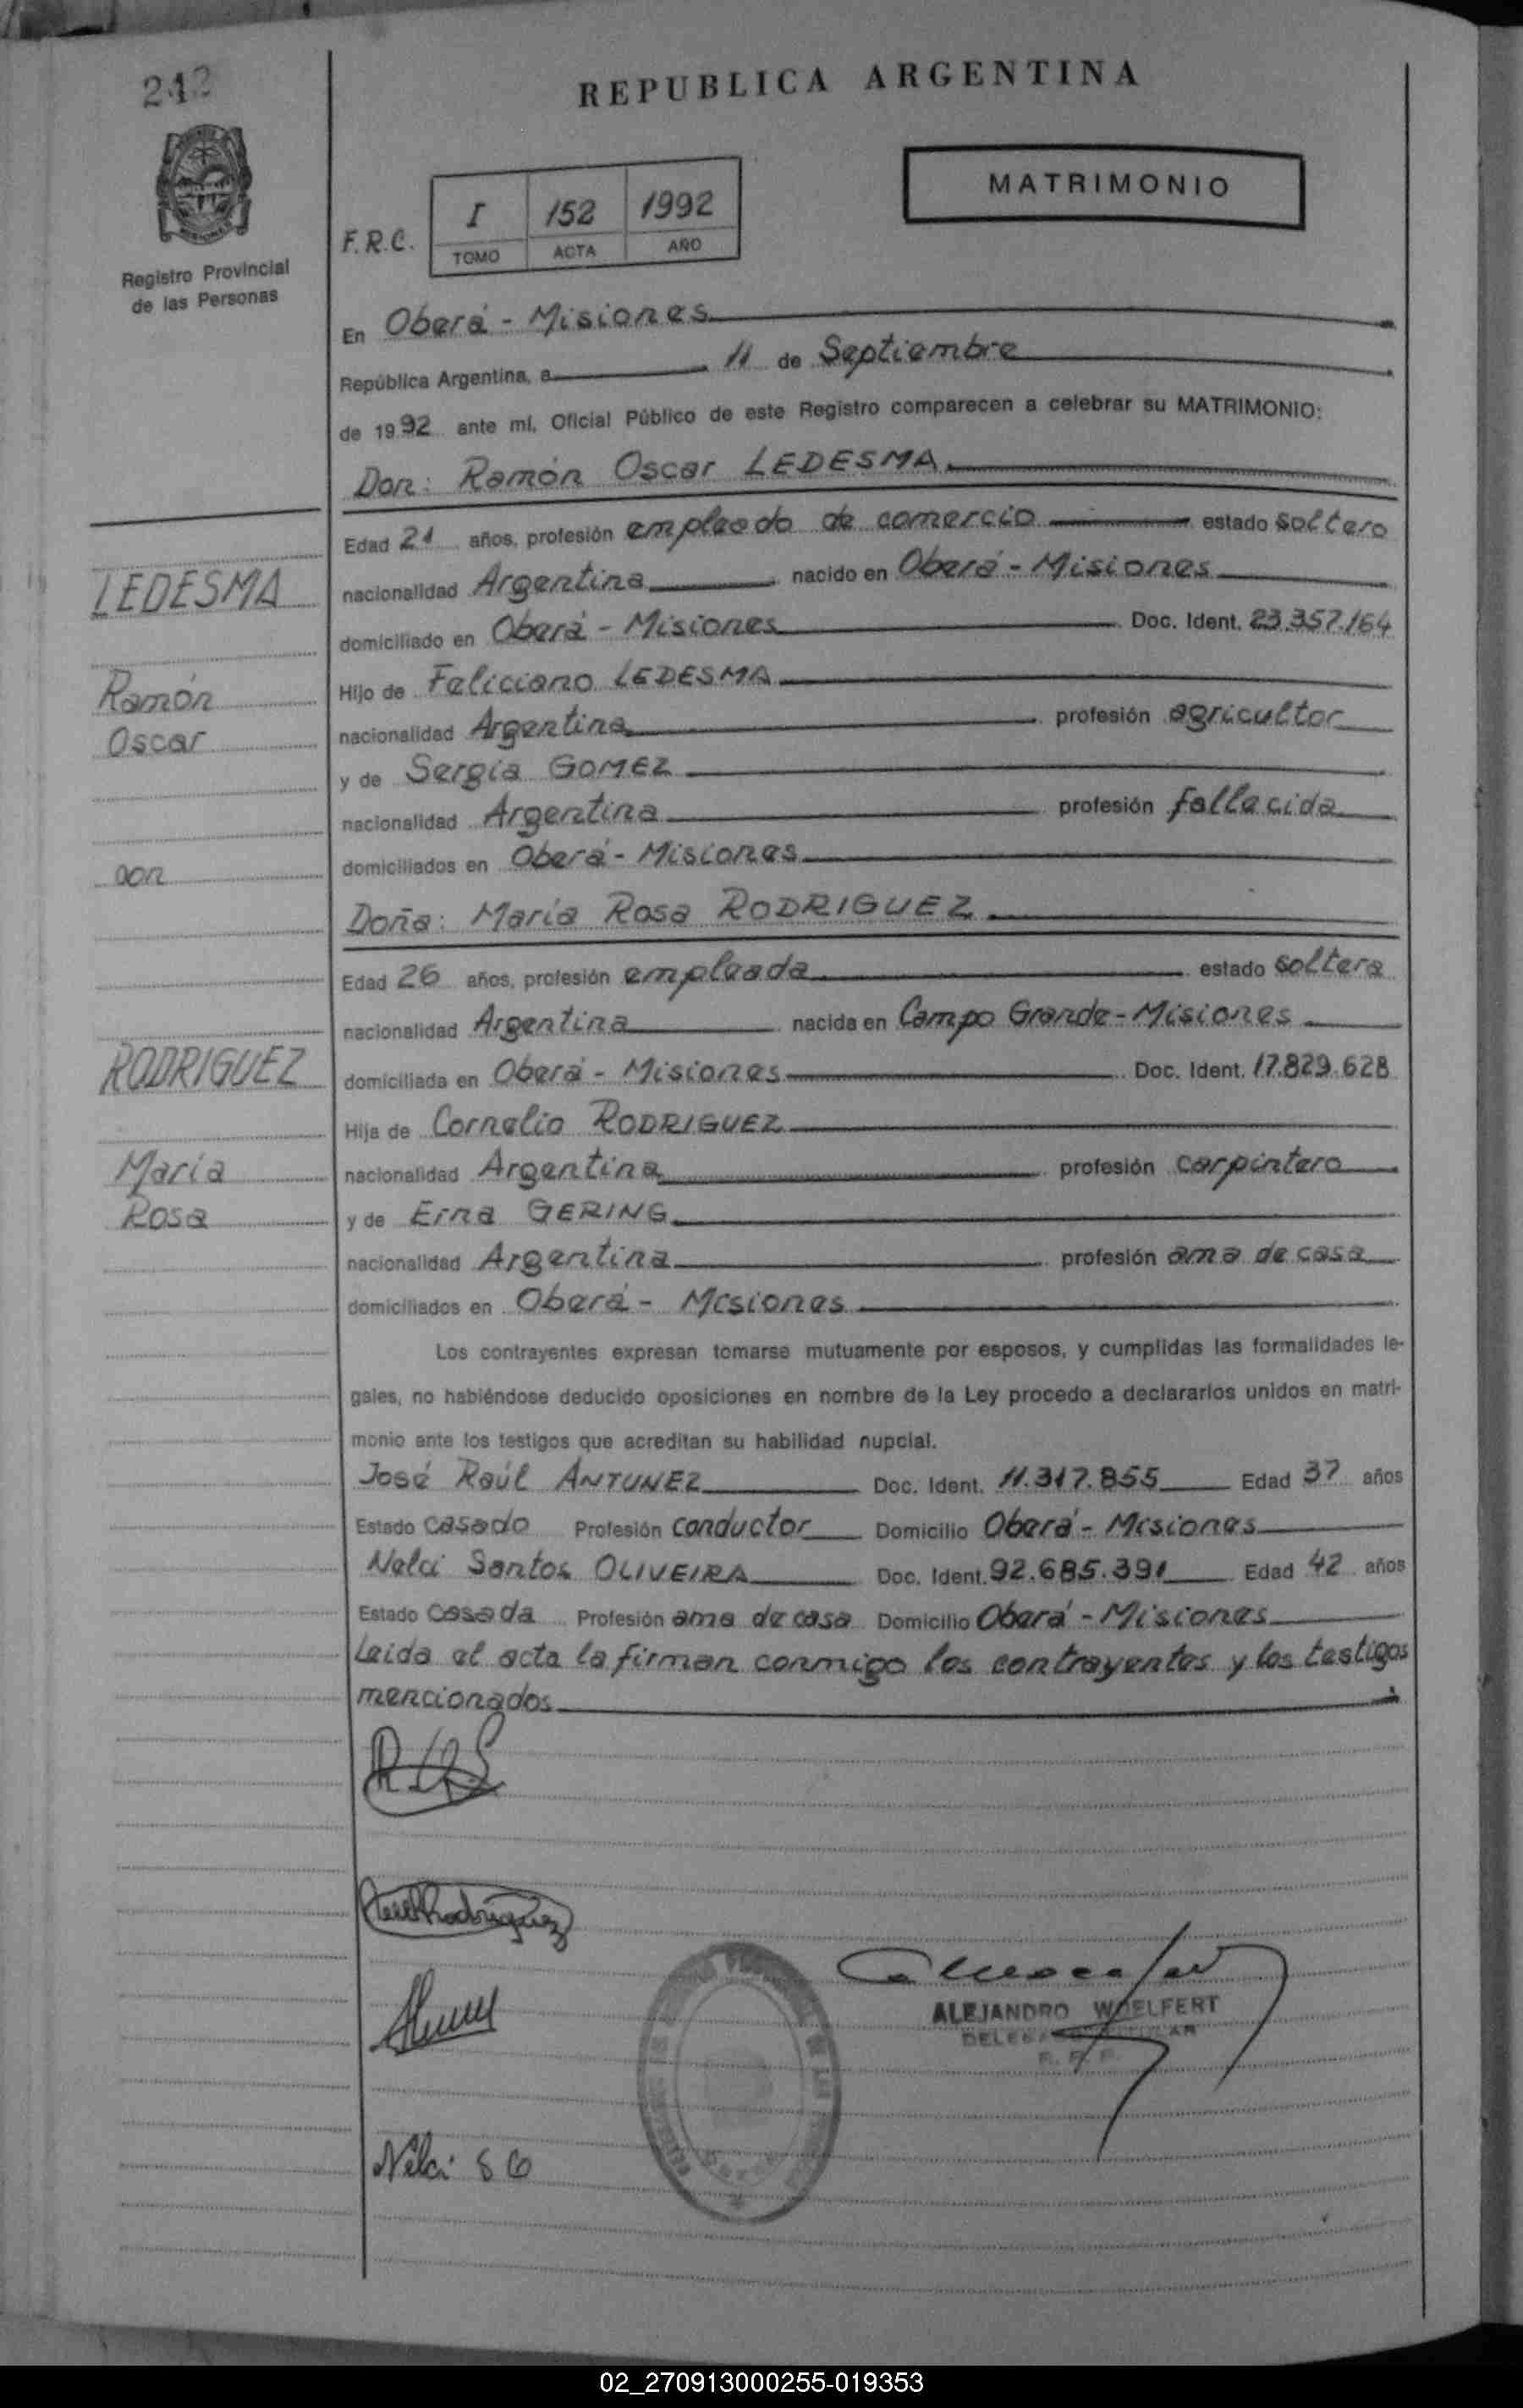 REPUBLICA ARGENTINA
MATRIMONIO
F.R.C. I 152 1992
TOMO ACTA AÑO
Registro Provincial
de las Personas
En Oberá - Misiones
República Argentina, a 11 de Septiembre
de 1992 ante mí, Oficial Público de este Registro comparecen a celebrar su MATRIMONIO:
Don: Ramón Oscar LEDESMA
Edad 21 años, profesión empleado de comercio estado soltero
LEDESMA
nacionalidad Argentina nacido en Oberá - Misiones
domiciliado en Oberá - Misiones Doc. Ident. 23.357.164
Ramón
Hijo de Feliciano LEDESMA
Oscar
nacionalidad Argentina profesión agricultor
y de Sergia GOMEZ
nacionalidad Argentina profesión fallecida
con
domiciliados en Oberá - Misiones
Doña: María Rosa RODRIGUEZ
Edad 26 años, profesión empleada estado soltera
nacionalidad Argentina nacida en Campo Grande - Misiones
RODRIGUEZ
domiciliada en Oberá - Misiones Doc. Ident. 17.829.628
Hija de Cornelio RODRIGUEZ
María
nacionalidad Argentina profesión carpintero
Rosa
y de Erna GERING
nacionalidad Argentina profesión ama de casa
domiciliados en Oberá - Misiones
Los contrayentes expresan tomarse mutuamente por esposos, y cumplidas las formalidades le-
gales, no habiéndose deducido oposiciones en nombre de la Ley procedo a declararlos unidos en matri-
monio ante los testigos que acreditan su habilidad nupcial.
José Raúl ANTUNEZ Doc. Ident. 11.317.855 Edad 37 años
Estado casado Profesión conductor Domicilio Oberá - Misiones
Nelci Santos OLIVEIRA Doc. Ident. 92.685.391 Edad 42 años
Estado casada Profesión ama de casa Domicilio Oberá - Misiones
Leida el acta la firman conmigo los contrayentes y los testigos
mencionados
Rodriguez
ALEJANDRO WOELFERT
Nelci S O
02_270913000255-019353